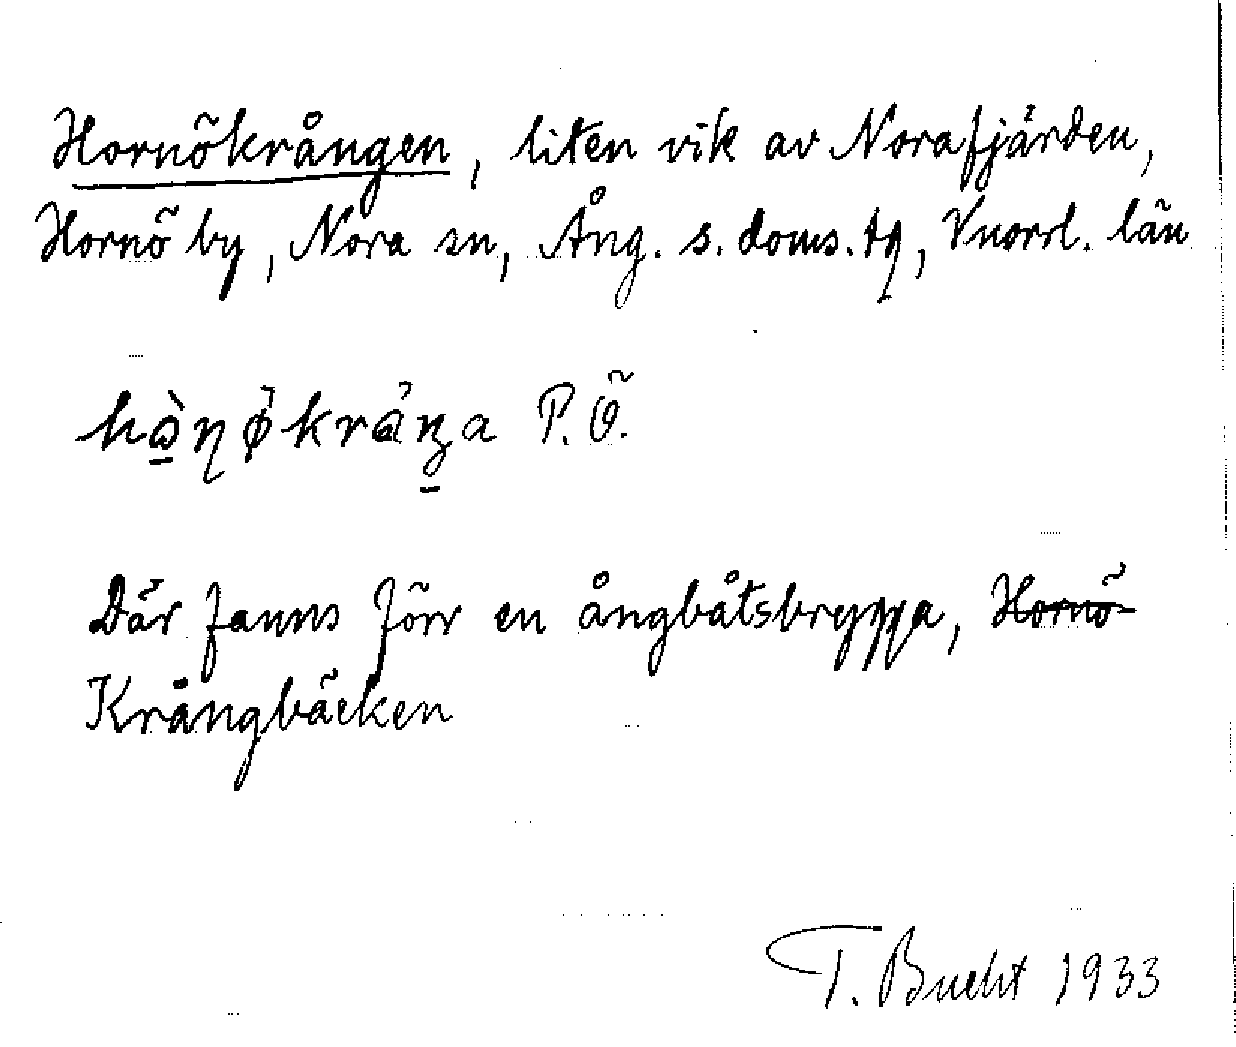 Hornökrången, liten vik av Norafjärden,
Hornö by, Nora sn, Ång. s. doms. tg, Vnorrl. län
P. Ö.
Där fanns förr en ångbåtsbrygga, Hornö-
Krångbäcken
T. Bucht 1933